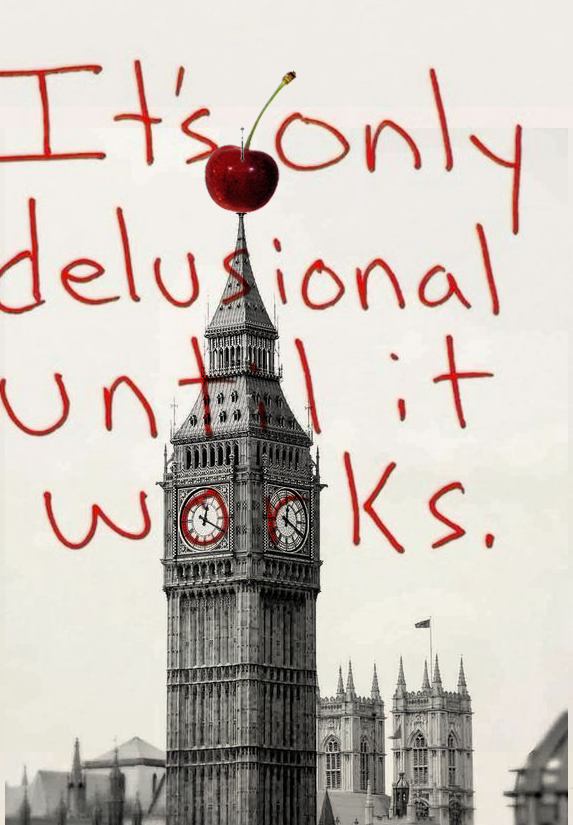 It's only
delusional
until it
works.